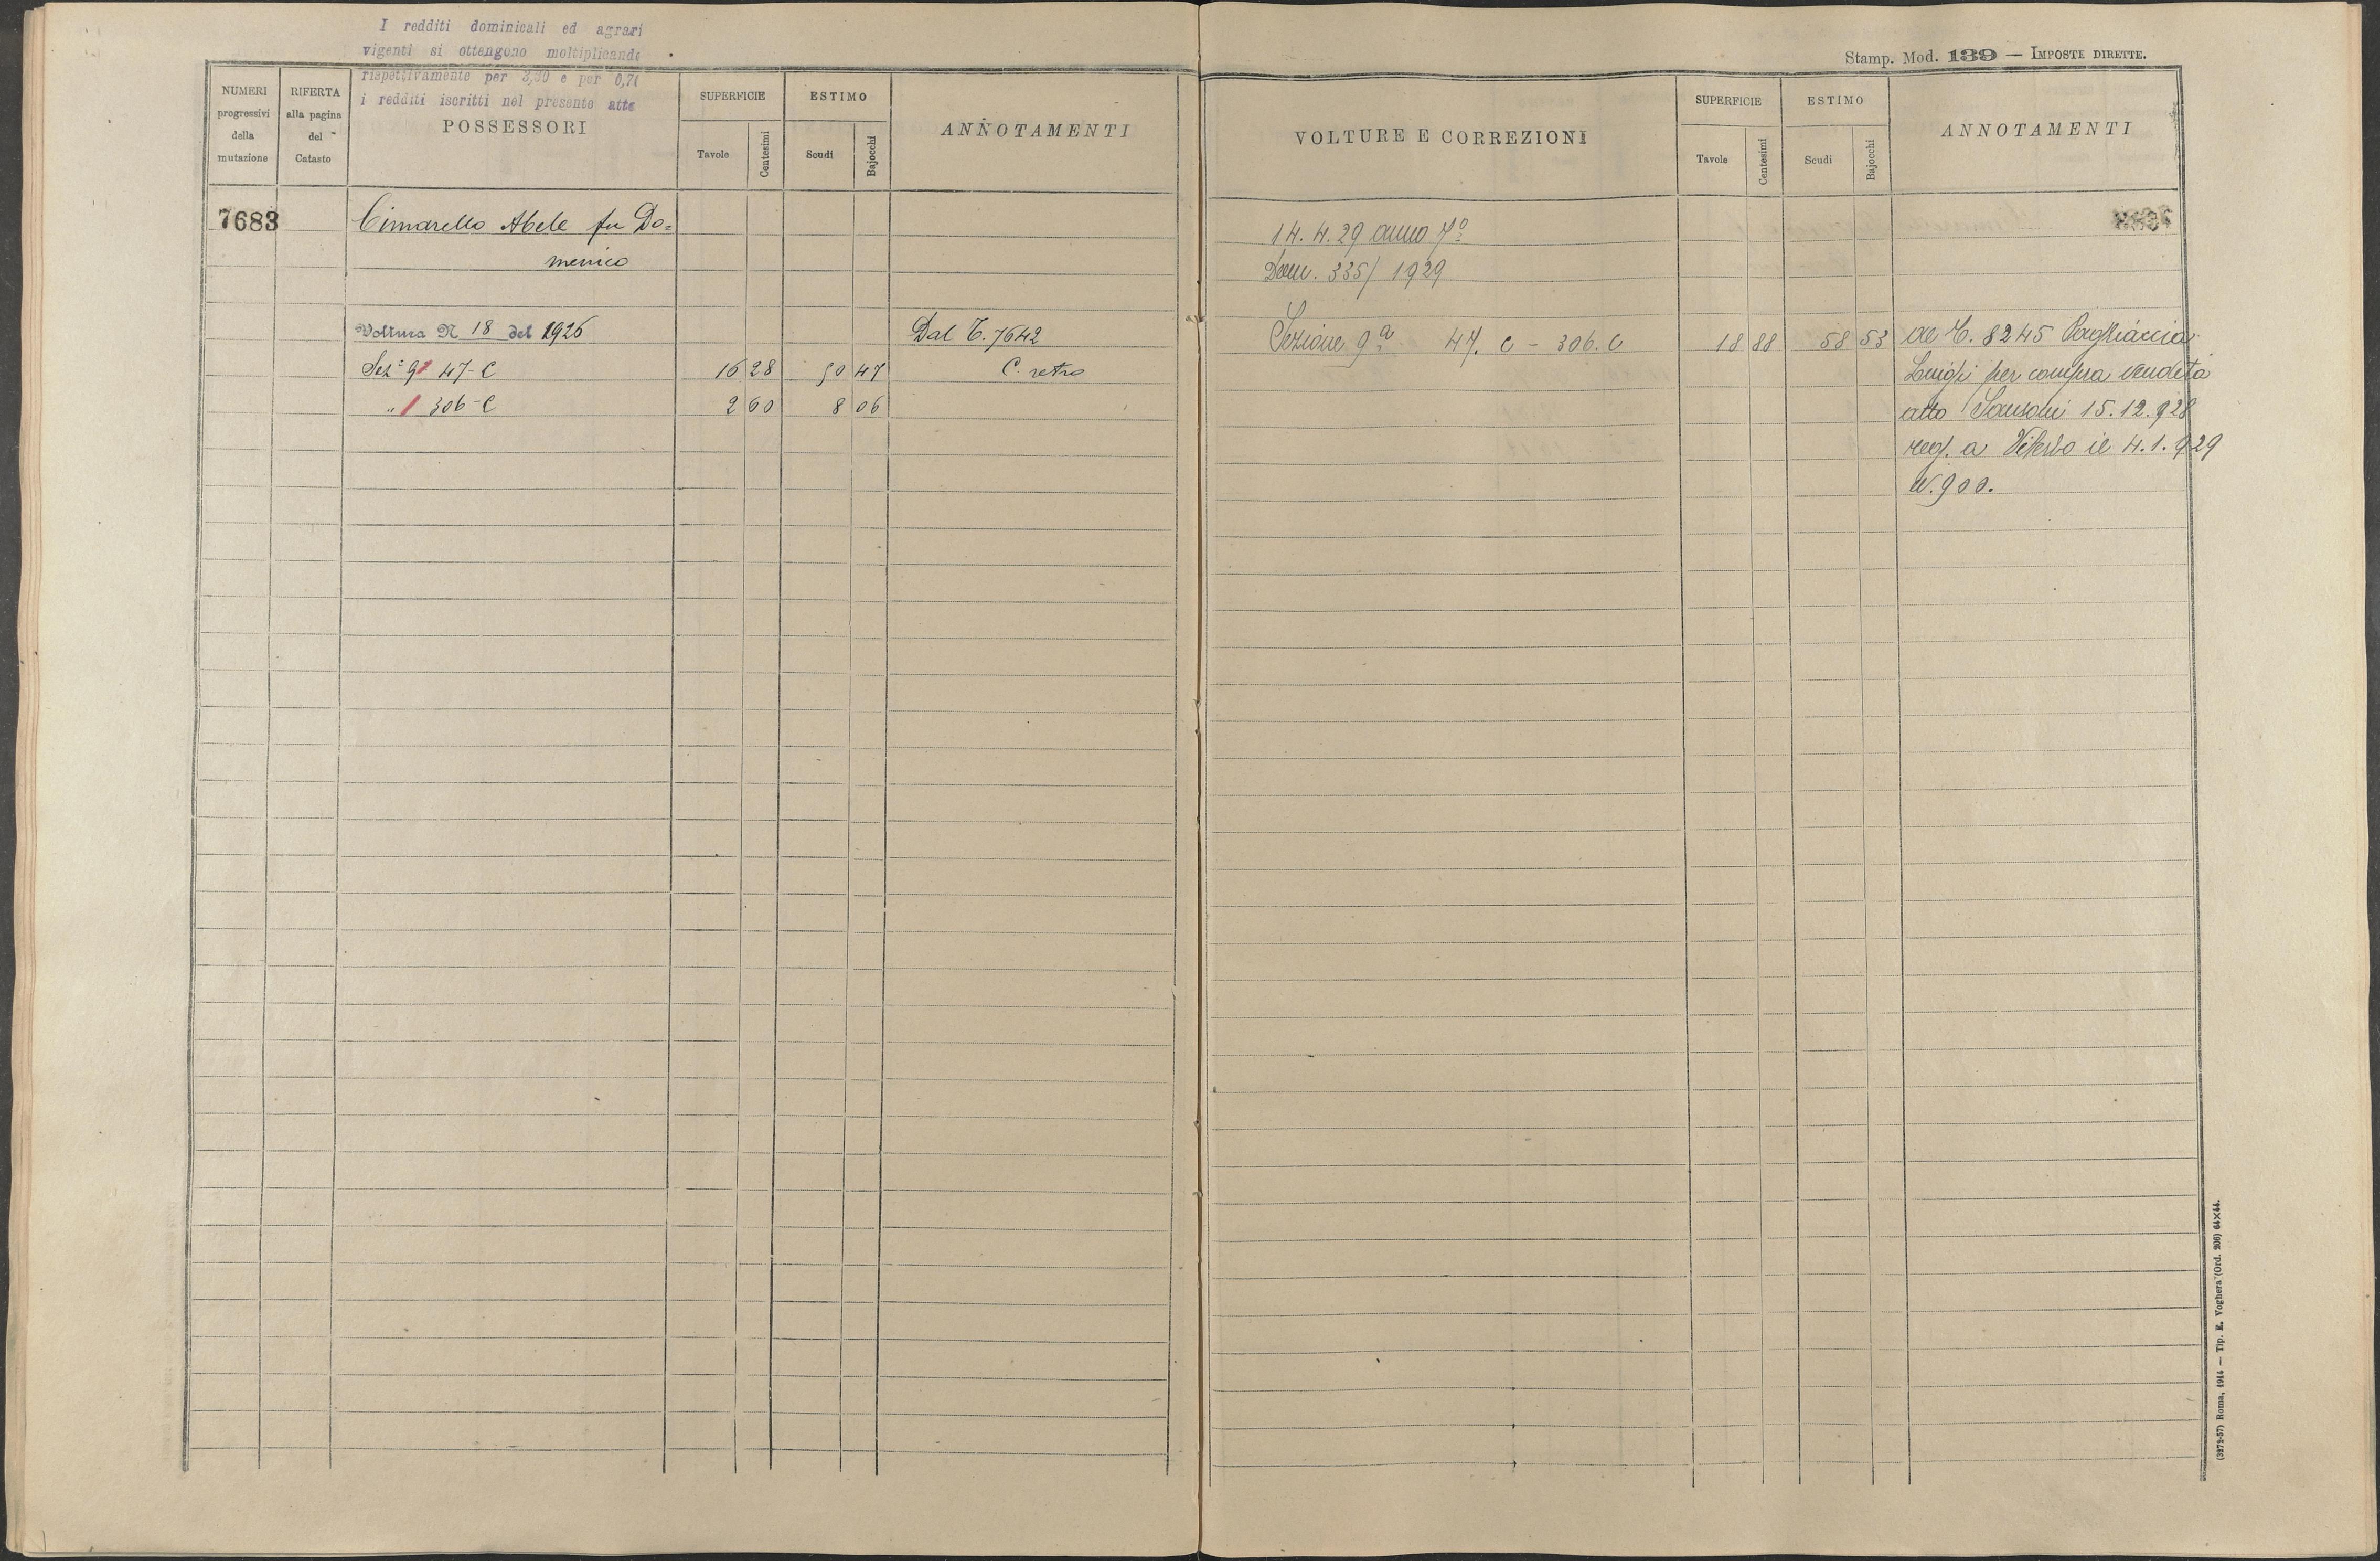 I redditi dominicali ed agrari
vigenti si ottengono moltiplicando
rispettivamente per 3,30 e per 0,70
i redditi iscritti nel presente atto
NUMERI progressivi della mutazione
RIFERTA alla pagina del Catasto
POSSESSORI
SUPERFICIE
Tavole Centesimi
ESTIMO
Scudi Bajocchi
ANNOTAMENTI
7683 Cimarello Abele fu Do=
menico
Voltura N 18 del 1926 Dal T. 7642
Sez.e 9a 47-C 16 28 50 47 C. retro
" 306-C 2 60 8 06
Stamp. Mod. 139 — IMPOSTE DIRETTE.
VOLTURE E CORREZIONI
SUPERFICIE
Tavole Centesimi
ESTIMO
Scudi Bajocchi
ANNOTAMENTI
14. 4. 29 anno 7º
Dom. 335/1929
Sezione 9a 47. C - 306. C 18 88 58 53 al T. 8245 Pagliaccia
Luigi per compra vendita
atto Sansoni 15.12.928
reg. a Viterbo il 4.1.929
N. 900.
(3272-57) Roma, 1914 — Tip. E. Voghera (Ord. 206) 64×44.